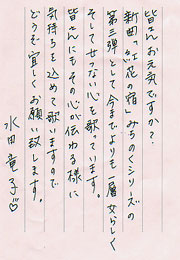 皆さんお元気ですか？
新曲「紅花の宿」みちのくシリーズの
第三弾として今までよりも一層女らしく
そしてせつない心を歌っています。
皆さんにもその心が伝わる様に
気持ちを込めて歌いますので
どうぞ宜しくお願い致します。
水田竜子♡